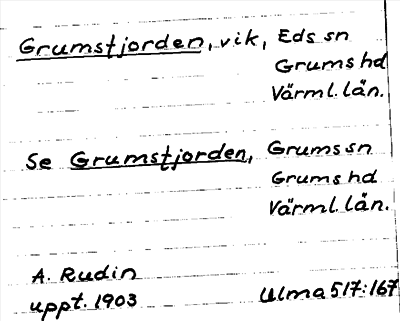 Grumsfjorden, vik, Eds sn
Grums hd
Värml. län.
Se Grumsfjorden, Grums sn
Grums hd
Värml. län.
A. Rudin
uppt. 1903 Ulma 517:167